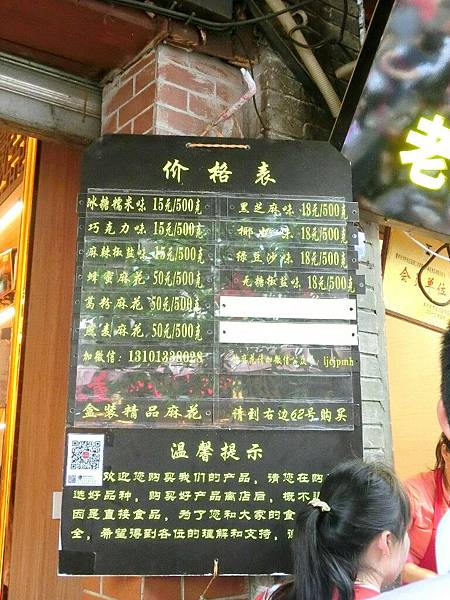 价格表
冰糖糯米味 15元/500克
黑芝麻味 18元/500克
巧克力味 15元/500克
椰 味 18元/500克
麻辣椒盐味 15元/500克
绿豆沙味 18元/500克
蜂蜜麻花 50元/500克
无糖椒盐味 18元/500克
葛粉麻花 50元/500克
荞麦麻花 50元/500克
加微信：13101338028
ljcjpmh
盒装精品麻花
请到右边62号购买
温馨提示
欢迎您购买我们的产品，请您在购
选好品种，购买好产品离店后，概不
因是直接食品，为了您和大家的食
全，希望得到各位的理解和支持，
老
会员单位